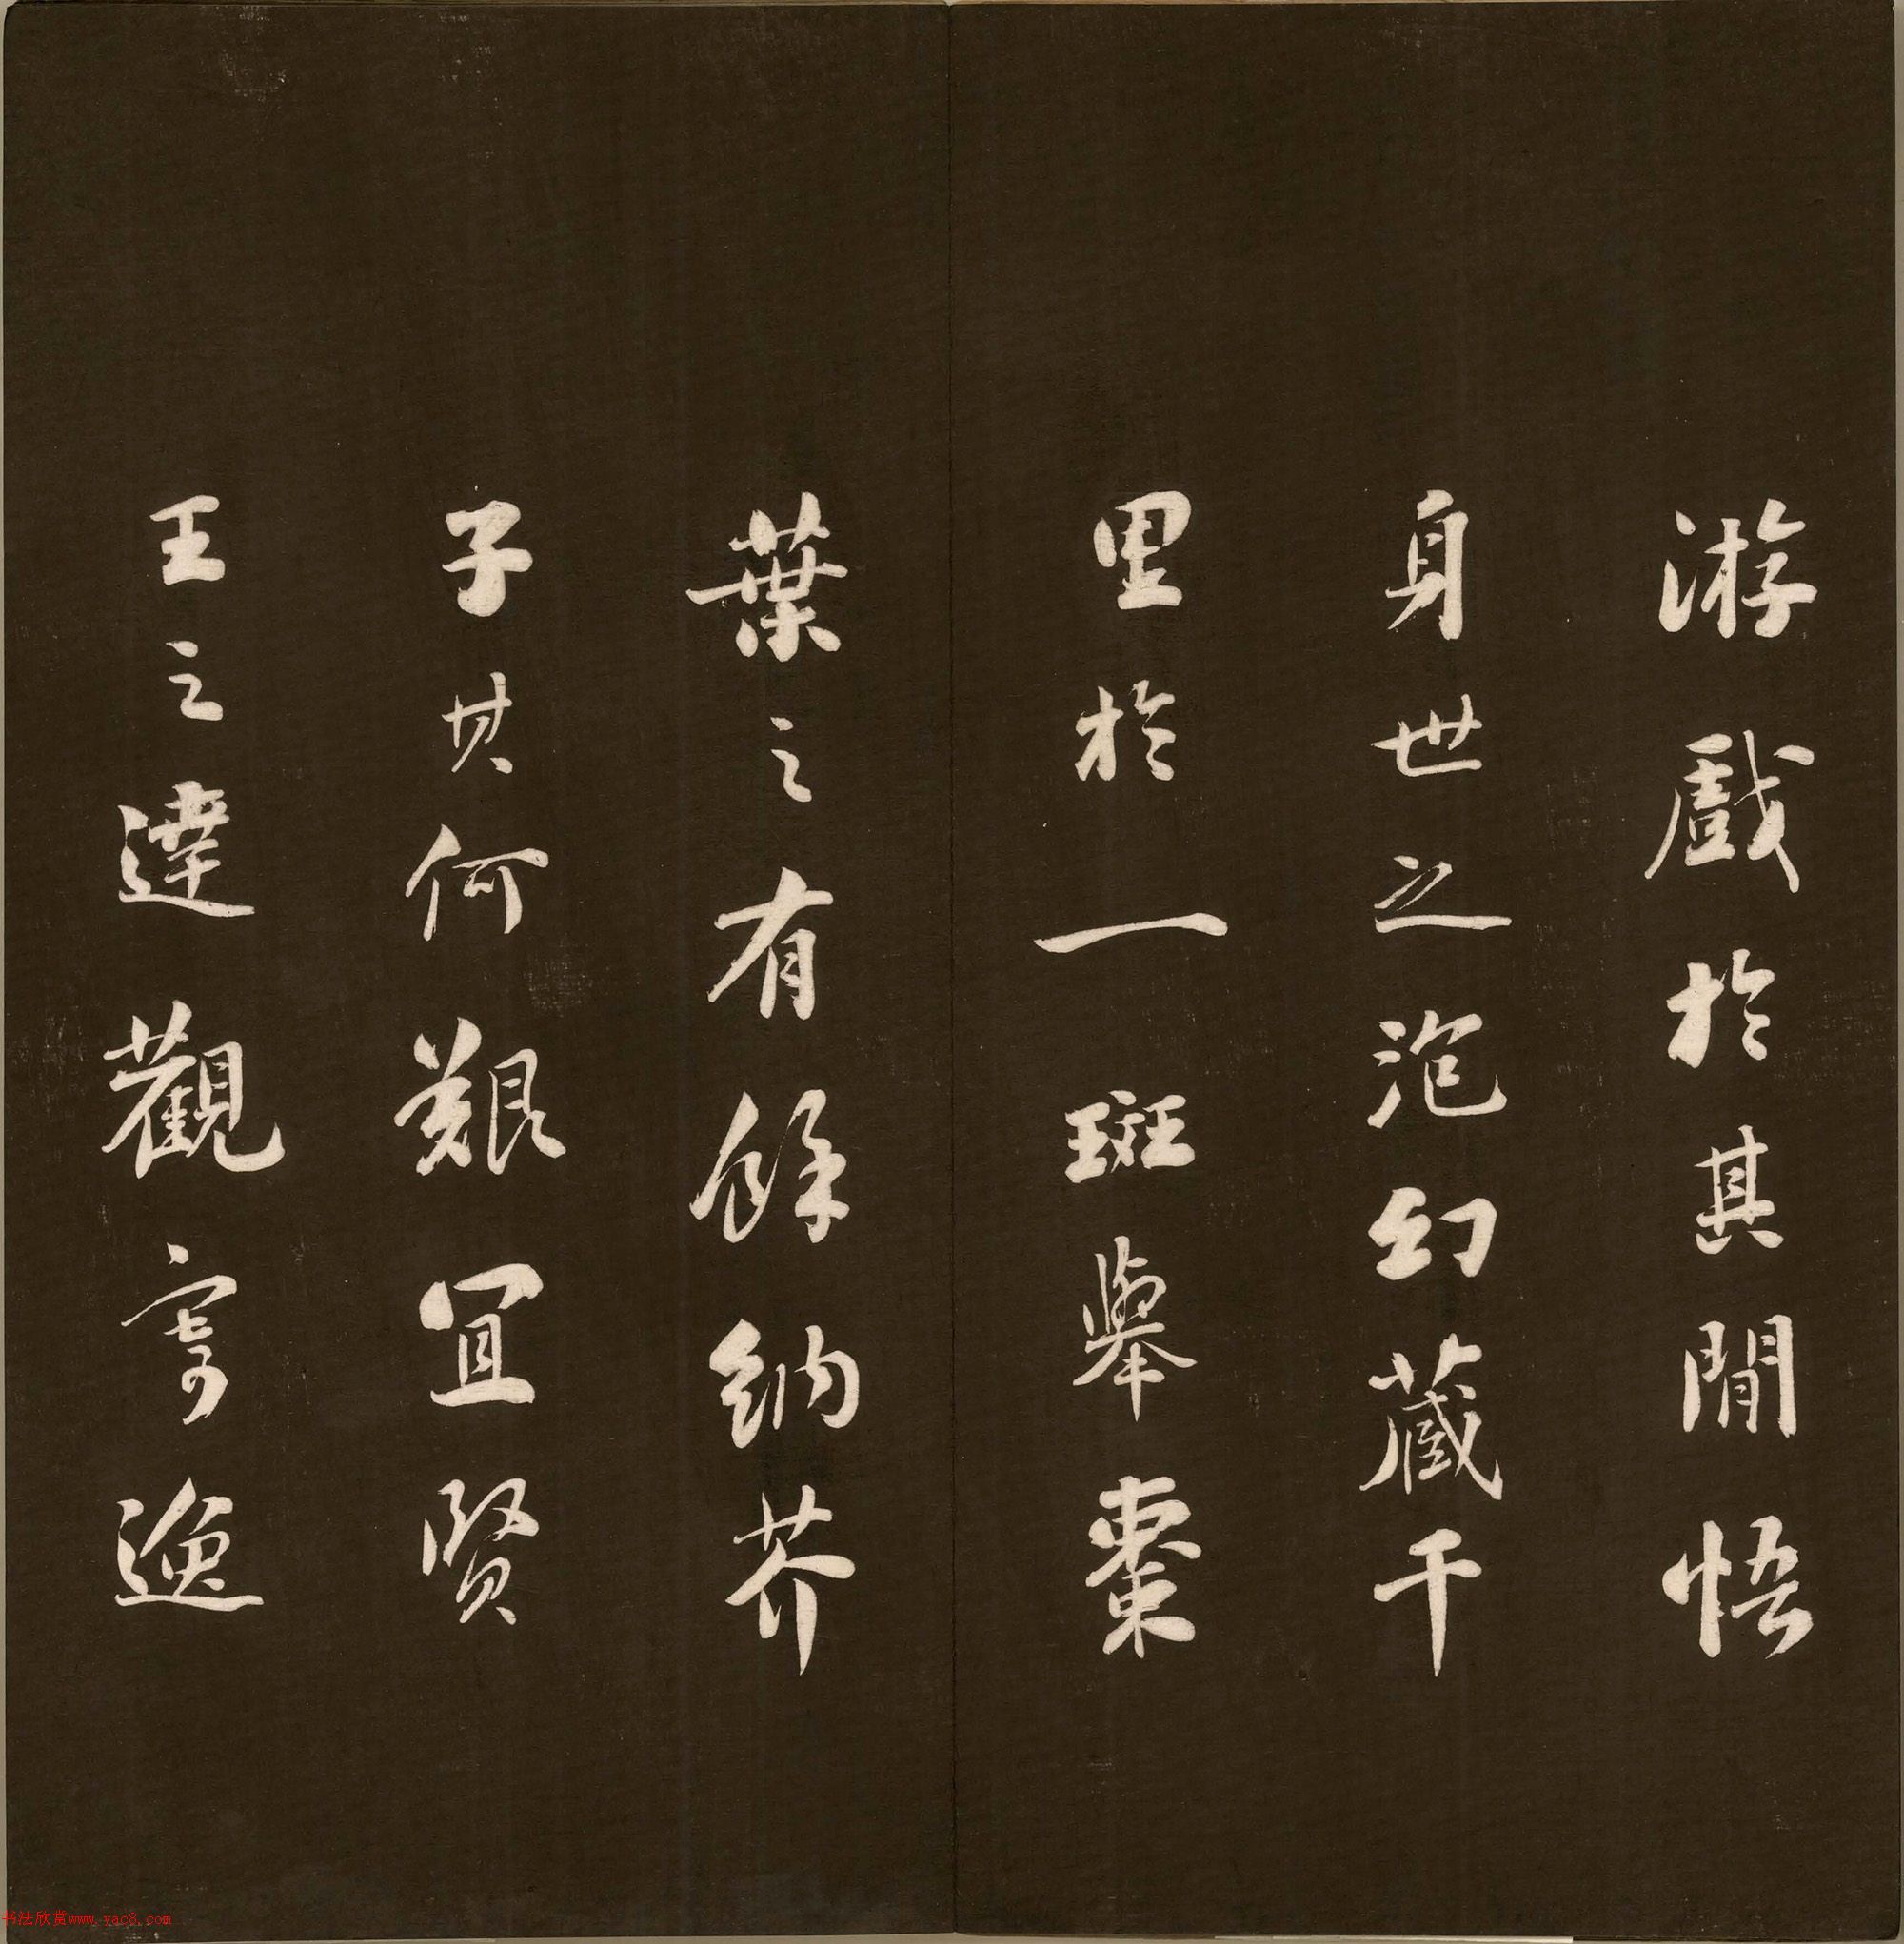 游戲於其間悟
身世之泡幻藏千
里於一班舉棗
葉之有餘納芥
子其何艱宜賢
王之達觀寄逸
书法欣赏www.yac8.com